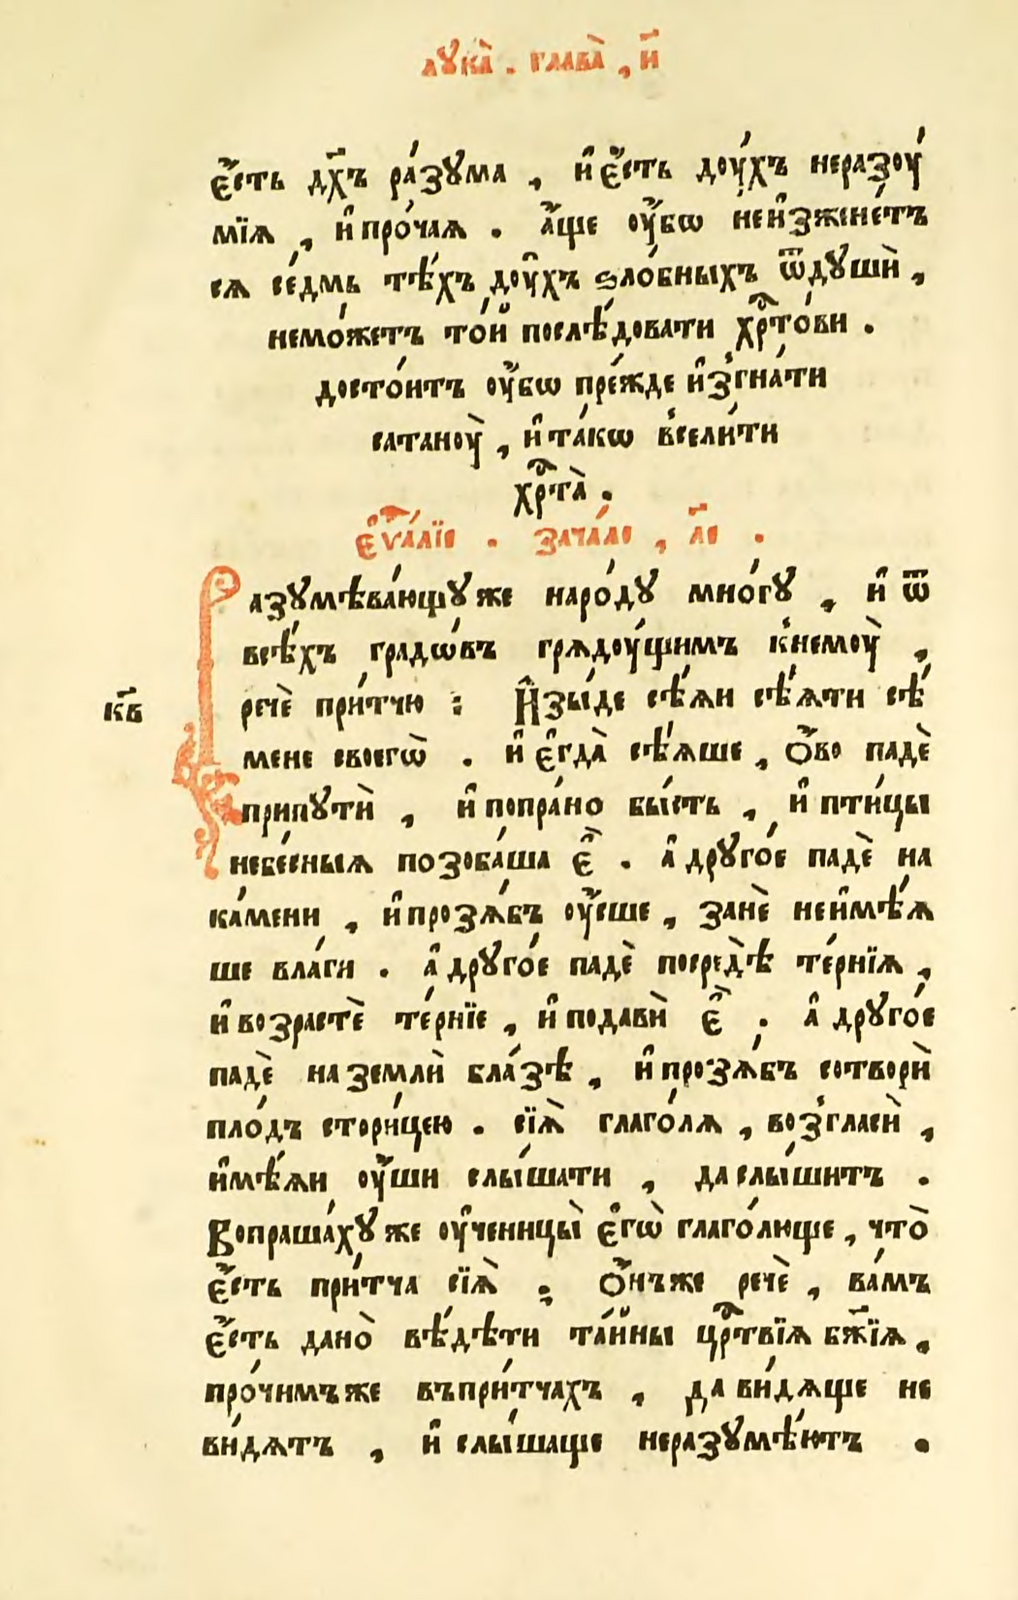 лꙋка̀ . глава̀ , и҃
є҆́сть дх҃ъ ра́зꙋма , и҆ є҆́сть доу́хъ неразоу́
мїѧ , и҆ про́чаѧ . а҆́ще оу҆́бѡ не и҆зжене́тъ
сѧ се́дмь тѣ́хъ доу҆́хъ ѕло́бныхъ ѿ дꙋшѝ ,
немо́жетъ то́й послѣ́довати хрⷭ҇то́ви .
досто́итъ оу҆́бѡ пре́жде и҆згна́ти
сатаноу̀ , и҆ та́кѡ вселѝти
хрⷭ҇та̀ .
є҆ѵⷢ҇а́лїе . зача́ло , л҃е .
Разꙋмѣва́ющꙋ же наро́дꙋ мно́гꙋ , и҆ ѿ
всѣ́хъ градѡ́въ грѧдоу́щимъ к немоу̀ ,
кв҃
речѐ при́тчю : И҆зы́де сѣ́ѧи сѣ́ѧти сѣ́
мене своегѡ̀ . и҆ є҆гда̀ сѣ́ѧше , ѻ҆́во падѐ
при пꙋтѝ , и҆ попра́но бы́сть , и҆ пти́цы
небе́сныѧ позоба́ша є҆̀ . а҆ дрꙋго́е падѐ на
ка́мени , и҆ прозѧ́бъ оу҆́сше , занѐ не и҆мѣ́ѧ
ше вла́ги . а҆ дрꙋго́е падѐ посредѣ̀ те́рнїѧ ,
и҆ возрастѐ те́рнїе , и҆ подавѝ є҆̀ . а҆ дрꙋго́е
падѐ на землѝ бла́зѣ , и҆ прозѧ́бъ сотворѝ
пло́дъ стори́цею . сїѧ̀ глаго́лѧ , возгласѝ ,
и҆мѣ́ѧи оу҆́ши слы́шати , да слы́шитъ .
Вопраша́хꙋ же оу҆ченицы̀ є҆гѡ̀ глаго́люще , что̀
є҆́сть при́тча сїѧ̀ ; Ѻ҆́нъ же речѐ , ва́мъ
є҆́сть дано̀ вѣ́дѣти та́йны црⷭ҇твїѧ бж҃їѧ ,
про́чимъ же въ при́тчахъ , да ви́дѧще не
ви́дѧтъ , и҆ слы́шаще не разꙋмѣ́ютъ .